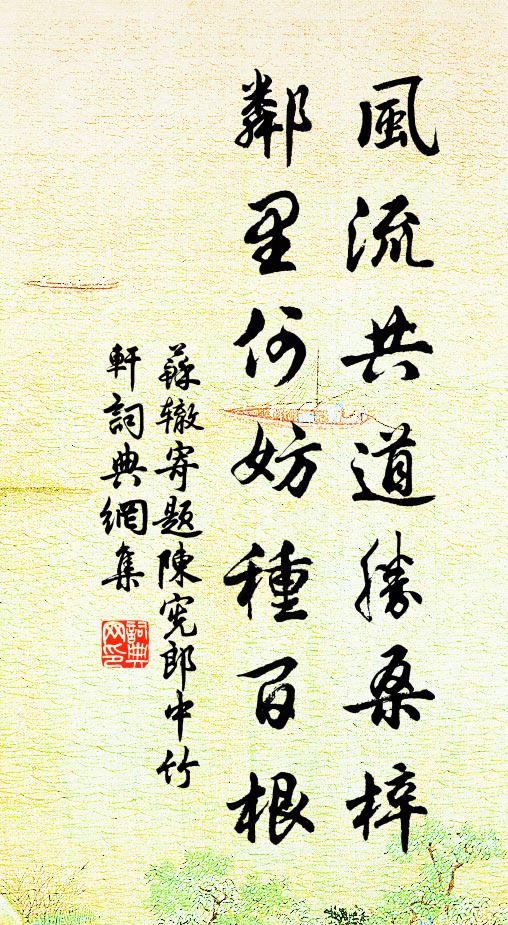 風流共道勝桑梓
鄰里何妨種百根
蘇轍寄題陳憲郎中竹
軒詞典網集
詞典
网印